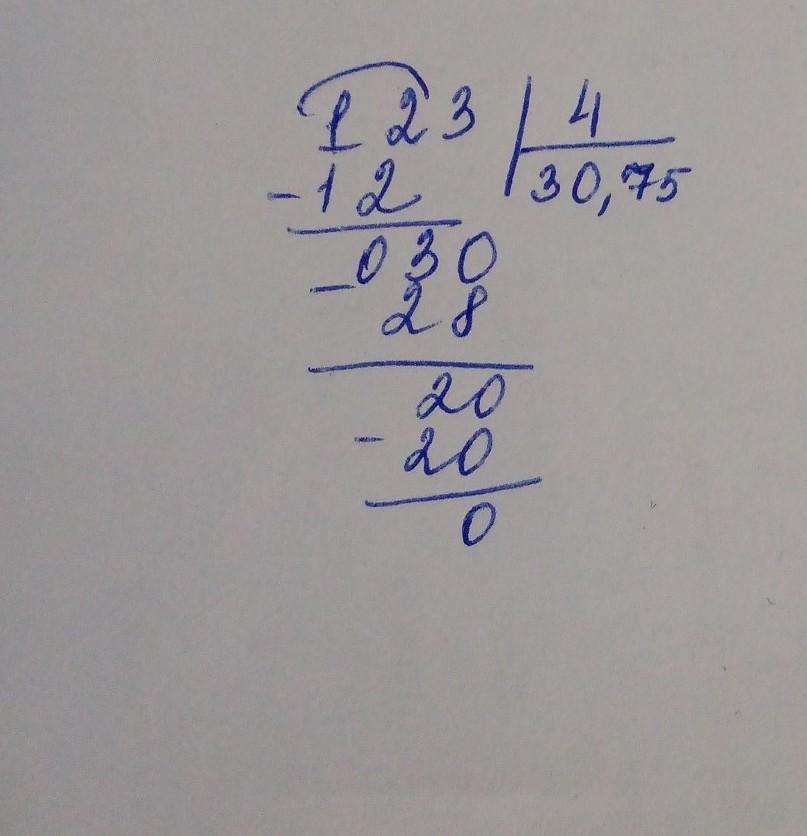 123 | 4
-12 30,75
030
- 28
20
- 20
0